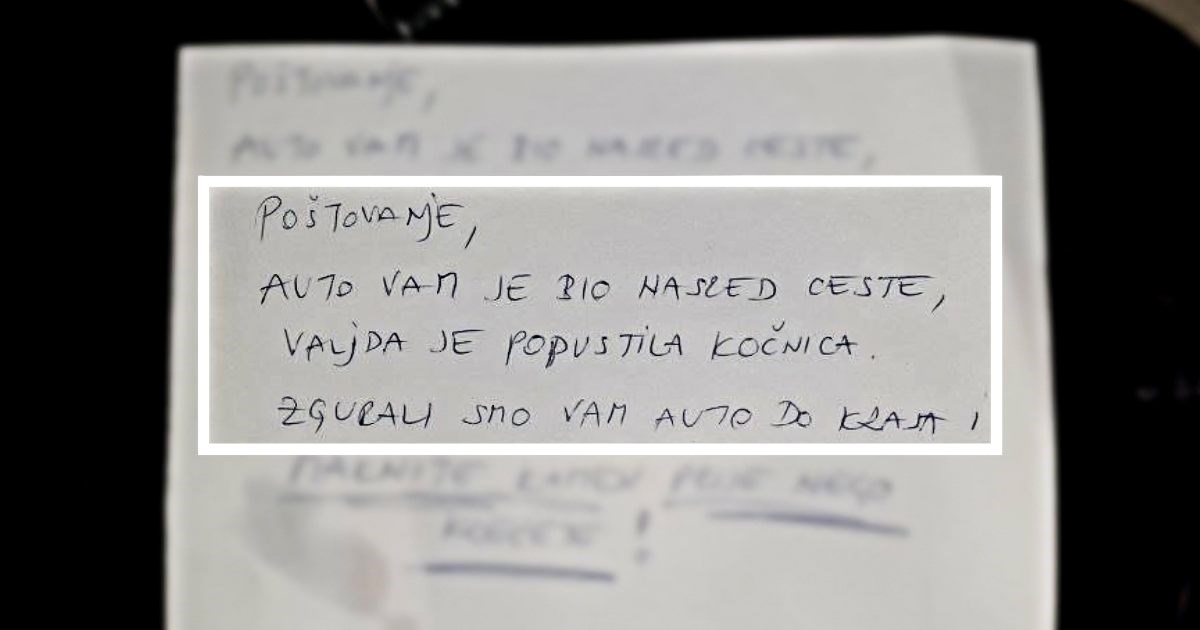 POŠTOVANJE,
AUTO VAM JE BIO NASRED CESTE,
POŠTOVANJE,
AUTO VAM JE BIO NASRED CESTE,
VALJDA JE POPUSTILA KOČNICA.
ZGURALI SMO VAM AUTO DO KRAJA I
MAKNITE KAMEN PRIJE NEGO